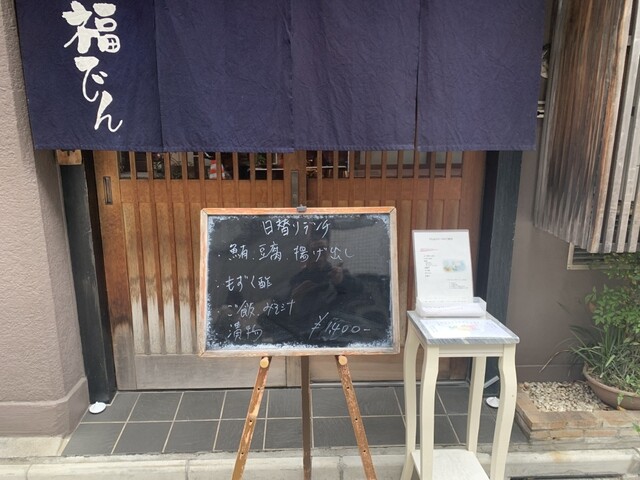 福でん
日替りランチ
・鮪、豆腐、揚げ出し
・もずく酢
・ご飯、みそ汁
・漬物 ¥1,400-